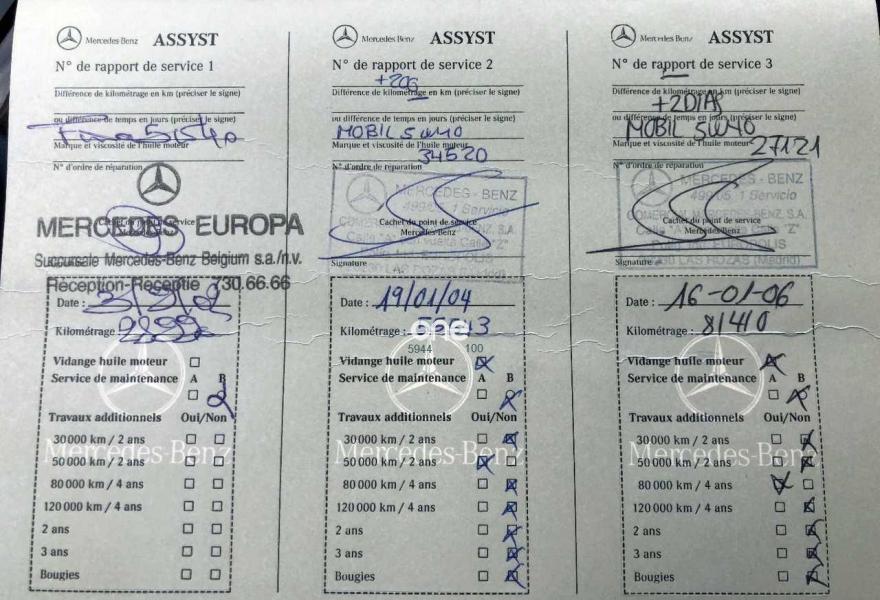 Mercedes-Benz ASSYST
N° de rapport de service 1
Différence de kilométrage en km (préciser le signe)
ou différence de temps en jours (préciser le signe)
Marque et viscosité de l'huile moteur
N° d'ordre de réparation
Cachet du point de service
MERCEDES EUROPA
Succursale Mercedes-Benz Belgium s.a./n.v.
Réception-Receptie 730.66.66
Date :
Kilométrage :
Vidange huile moteur
Service de maintenance A B
Travaux additionnels Oui/Non
30 000 km / 2 ans
50 000 km / 2 ans
80 000 km / 4 ans
120 000 km / 4 ans
2 ans
3 ans
Bougies
Mercedes-Benz
Mercedes-Benz ASSYST
N° de rapport de service 2
Différence de kilométrage en km (préciser le signe)
ou différence de temps en jours (préciser le signe)
MOBIL 5W40
Marque et viscosité de l'huile moteur
34520
N° d'ordre de réparation
MERCEDES - BENZ
1 Servicio
Cachet du point de service
Mercedes-Benz
LAS ROZAS
Signature
Date : 19/01/04
Kilométrage :
one
5944 100
Vidange huile moteur
Service de maintenance A B
Travaux additionnels Oui/Non
30 000 km / 2 ans
50 000 km / 2 ans
80 000 km / 4 ans
120 000 km / 4 ans
2 ans
3 ans
Bougies
Mercedes-Benz
Mercedes-Benz ASSYST
N° de rapport de service 3
Différence de kilométrage en km (préciser le signe)
+2DIAS
ou différence de temps en jours (préciser le signe)
MOBIL 5W40
Marque et viscosité de l'huile moteur
27121
N° d'ordre de réparation
MERCEDES - BENZ
1 Servicio
Cachet du point de service
Mercedes-Benz
LAS ROZAS (Madrid)
Signature
Date : 16-01-06
Kilométrage : 81410
Vidange huile moteur
Service de maintenance A B
Travaux additionnels Oui/Non
30 000 km / 2 ans
50 000 km / 2 ans
80 000 km / 4 ans
120 000 km / 4 ans
2 ans
3 ans
Bougies
Mercedes-Benz